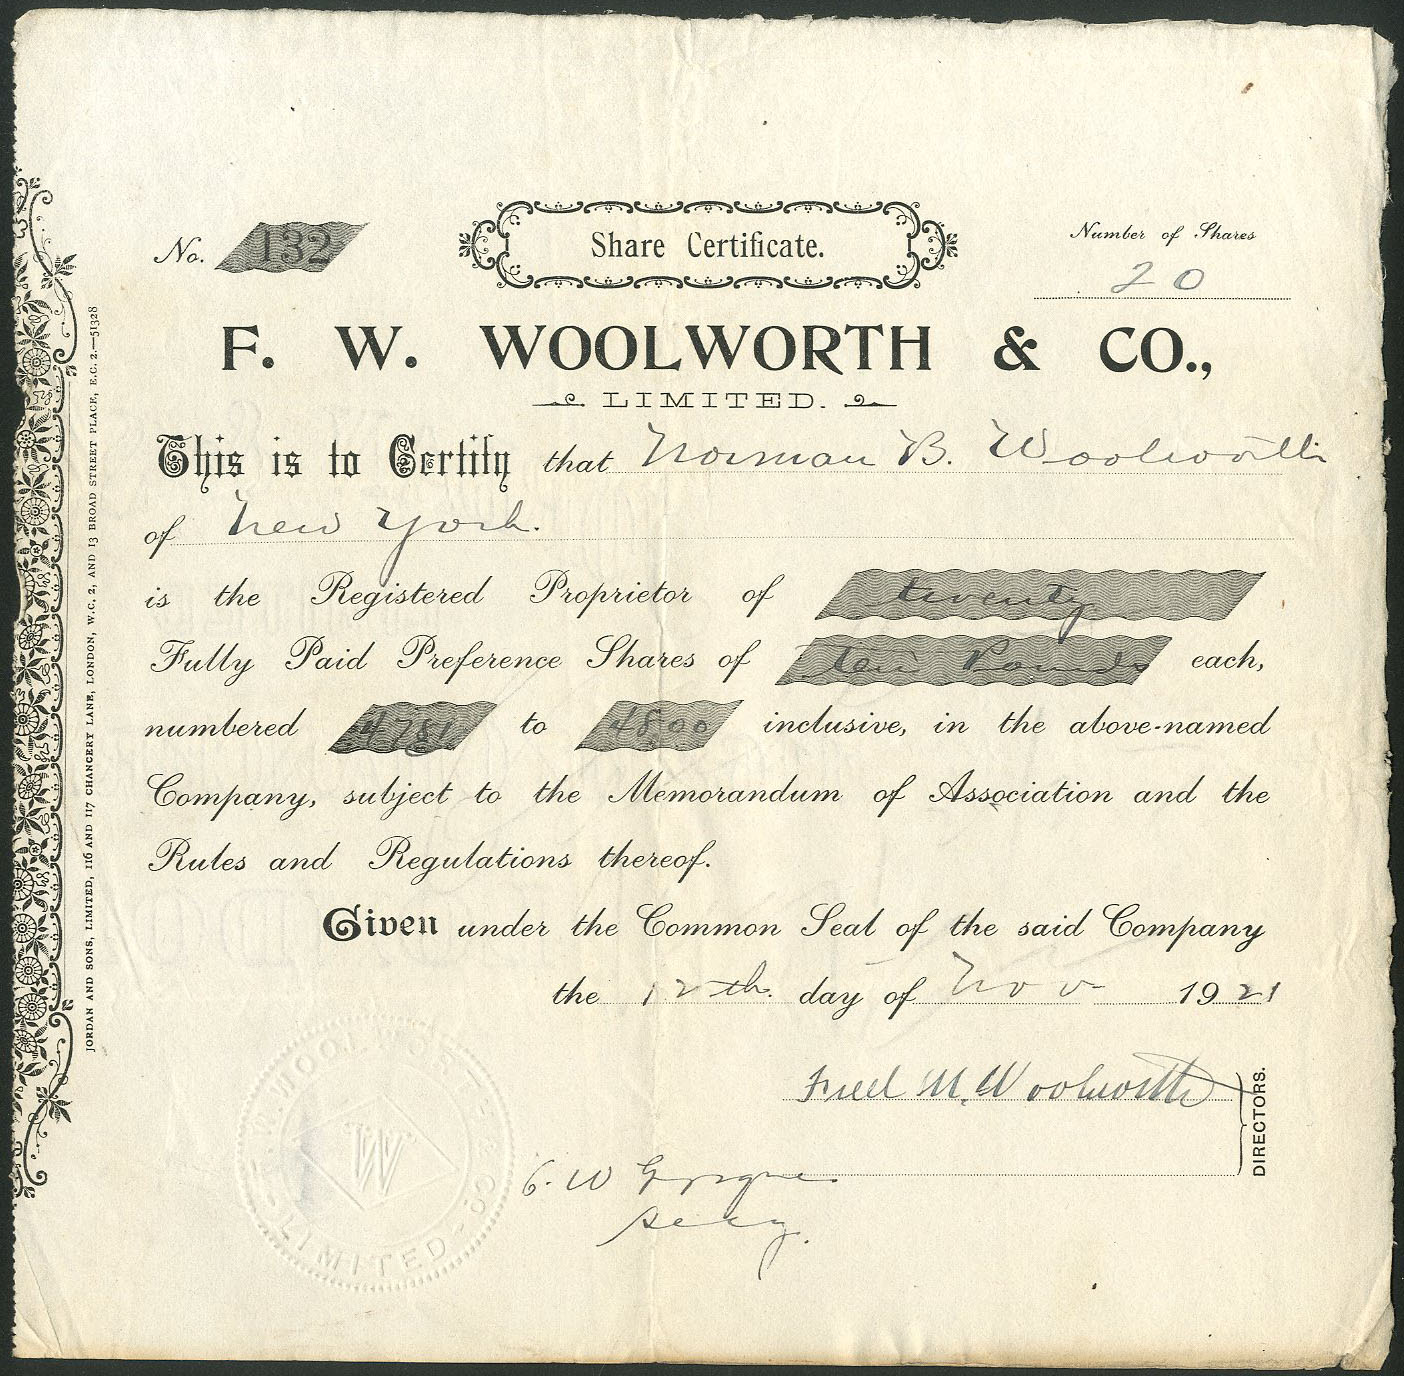 No. 132
Share Certificate.
Number of Shares
20
F. W. WOOLWORTH & CO.,
LIMITED.
This is to Certify that Norman B. Woolworth
of New York.
is the Registered Proprietor of twenty
Fully Paid Preference Shares of ten Pounds each,
numbered 4781 to 4800 inclusive, in the above-named
Company, subject to the Memorandum of Association and the
Rules and Regulations thereof.
Given under the Common Seal of the said Company
the 12th. day of Nov 1921
Fred M. Woolworth
DIRECTORS.
Secy.
F. W. WOOLWORTH & CO. LIMITED
W
JORDAN AND SONS, LIMITED, 116 AND 117 CHANCERY LANE, LONDON, W.C. 2, AND 13 BROAD STREET PLACE, E.C. 2.—51328